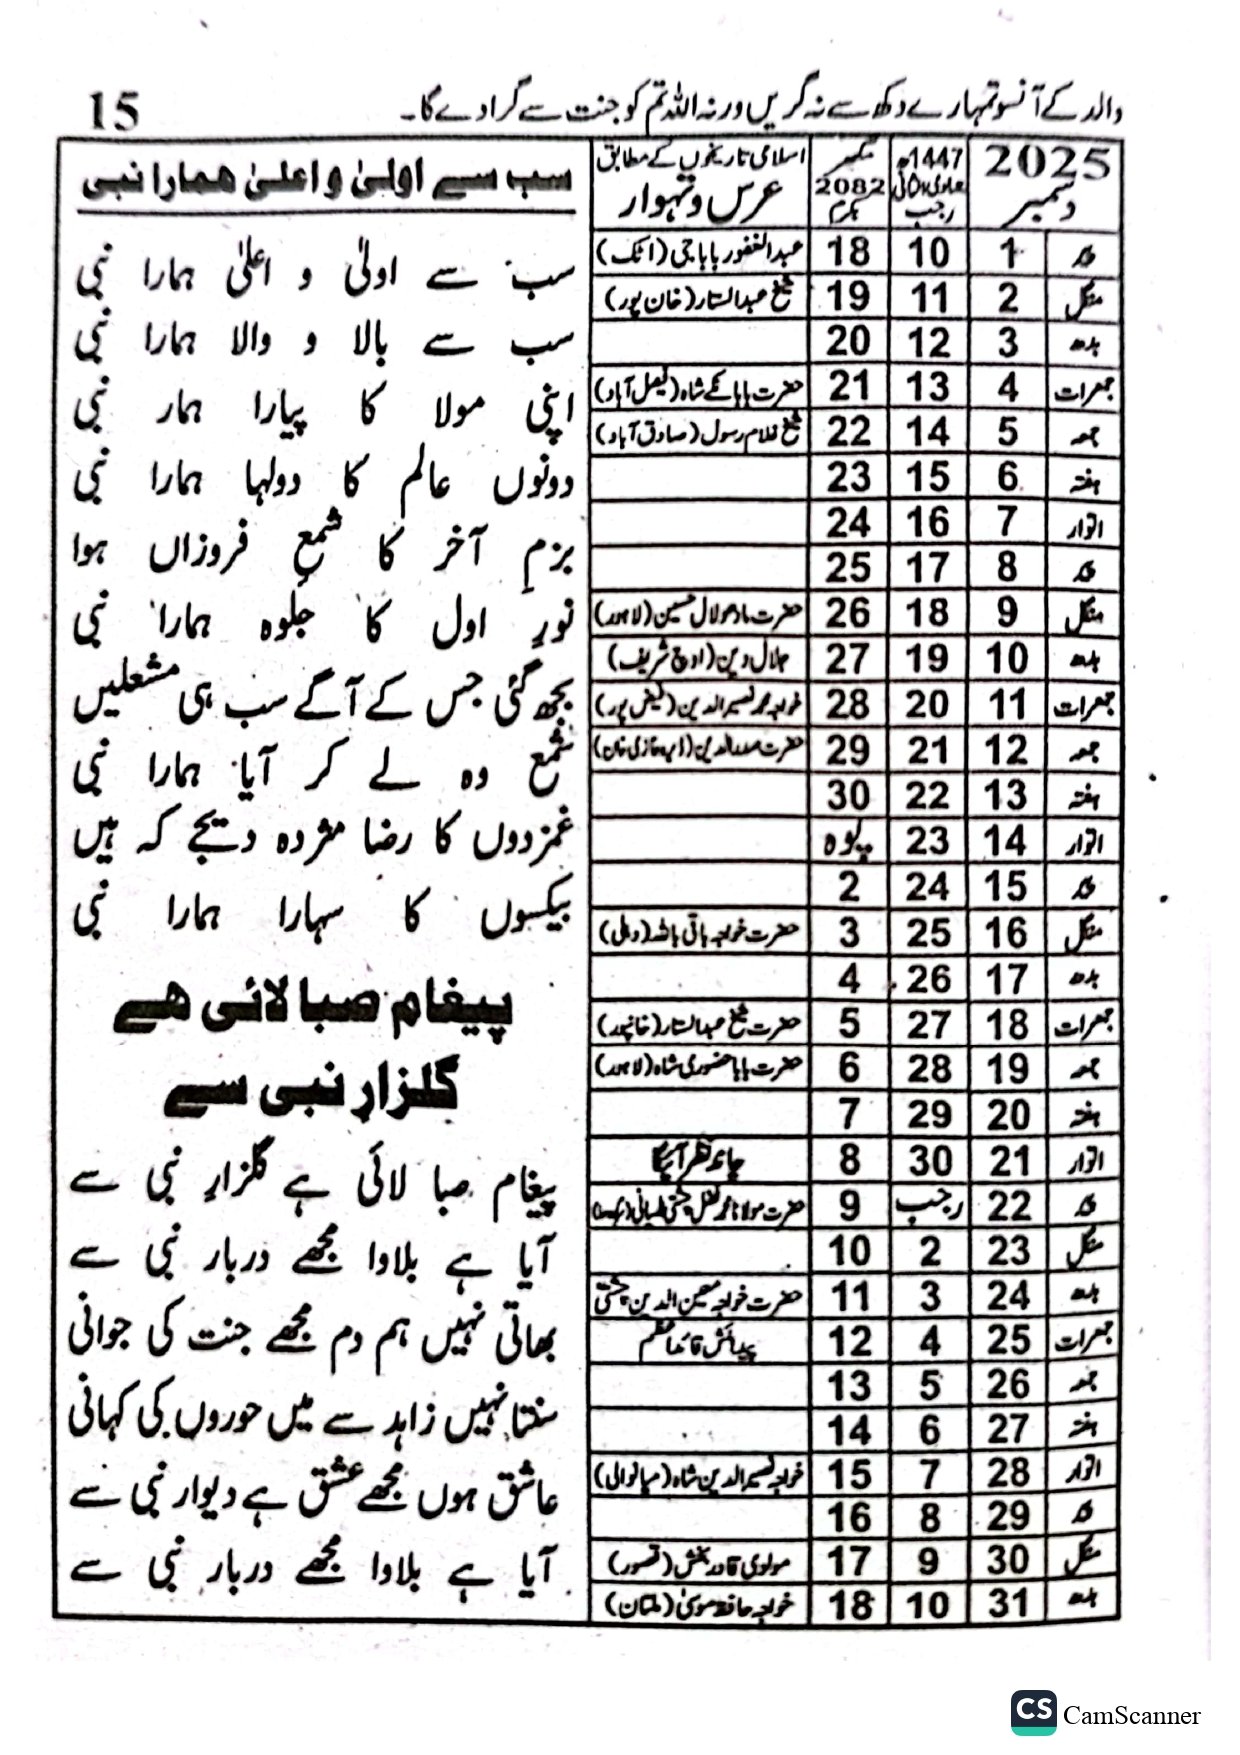 والد کے آنسو تمہارے دکھ سے نہ گریں ورنہ اللہ تم کو جنت سے گرا دے گا۔
15
2025 دسمبر
1447ھ جمادی الثانی رجب
مگھر 2082 بکرم
اسلامی تاریخوں کے مطابق عرس و تہوار
پیر 1 10 18 عبدالغفور باباجی (اٹک)
منگل 2 11 19 شیخ عبدالستار (خان پور)
بدھ 3 12 20
جمعرات 4 13 21 حضرت بابا شاہ (فیصل آباد)
جمعہ 5 14 22 شیخ غلام رسول (صادق آباد)
ہفتہ 6 15 23
اتوار 7 16 24
پیر 8 17 25
منگل 9 18 26 حضرت مادھولال حسین (لاہور)
بدھ 10 19 27 جلال دین (اوچ شریف)
جمعرات 11 20 28 خواجہ محمد نصیرالدین
جمعہ 12 21 29 حضرت (ڈیرہ غازی خان)
ہفتہ 13 22 30
اتوار 14 23 پوہ
پیر 15 24 2
منگل 16 25 3 حضرت خواجہ باقی باللہ (دہلی)
بدھ 17 26 4
جمعرات 18 27 5 حضرت شیخ عبدالستار (خانپور)
جمعہ 19 28 6 حضرت بابا حضوری شاہ (لاہور)
ہفتہ 20 29 7
اتوار 21 30 8 چاند نظر آئیگا
پیر 22 رجب 9 حضرت مولانا محمد
منگل 23 2 10
بدھ 24 3 11 حضرت خواجہ معین الدین چشتی
جمعرات 25 4 12 پیدائش قائداعظم
جمعہ 26 5 13
ہفتہ 27 6 14
اتوار 28 7 15 خواجہ نصیرالدین شاہ (میانوالی)
پیر 29 8 16
منگل 30 9 17 مولوی قادر بخش (قصور)
بدھ 31 10 18 خواجہ حافظ موسیٰ (ملتان)
سب سے اولیٰ و اعلیٰ ھمارا نبی
سب سے اولیٰ و اعلیٰ ہمارا نبی
سب سے بالا و والا ہمارا نبی
اپنی مولا کا پیارا ہمار نبی
دونوں عالم کا دولہا ہمارا نبی
بزمِ آخر کا شمعِ فروزاں ہوا
نورِ اول کا جلوہ ہمارا نبی
بجھ گئی جس کے آگے سب ہی مشعلیں
شمع وہ لے کر آیا ہمارا نبی
غمزدوں کا رضا مژدہ دیجے کہ ہیں
بیکسوں کا سہارا ہمارا نبی
پیغام صبا لائی ھے
گلزارِ نبی سے
پیغام صبا لائی ہے گلزارِ نبی سے
آیا ہے بلاوا مجھے دربار نبی سے
بھاتی نہیں ہم دم مجھے جنت کی جوانی
سنتا نہیں زاہد سے میں حوروں کی کہانی
عاشق ہوں مجھے عشق ہے دیوار نبی سے
آیا ہے بلاوا مجھے دربار نبی سے
CS CamScanner